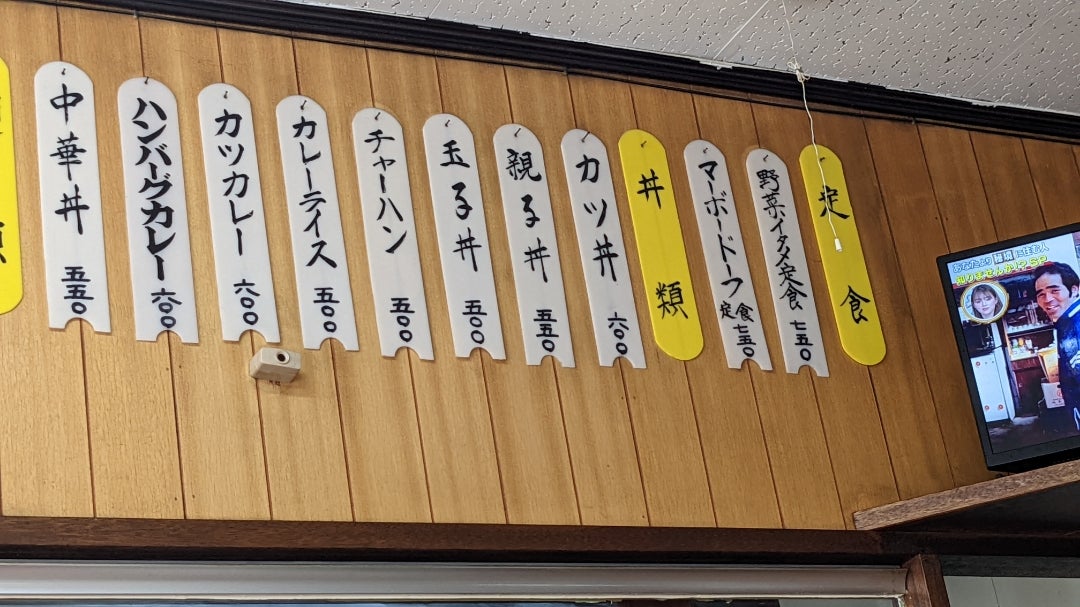 定食
野菜イタメ定食 七五〇
マーボードーフ定食 七五〇
丼類
カツ丼 六〇〇
親子丼 五五〇
玉子丼 五〇〇
チャーハン 五〇〇
カレーライス 五〇〇
カツカレー 六〇〇
ハンバーグカレー 六〇〇
中華丼 五五〇
類
あなたより
に住む人
知りませんか!?SP